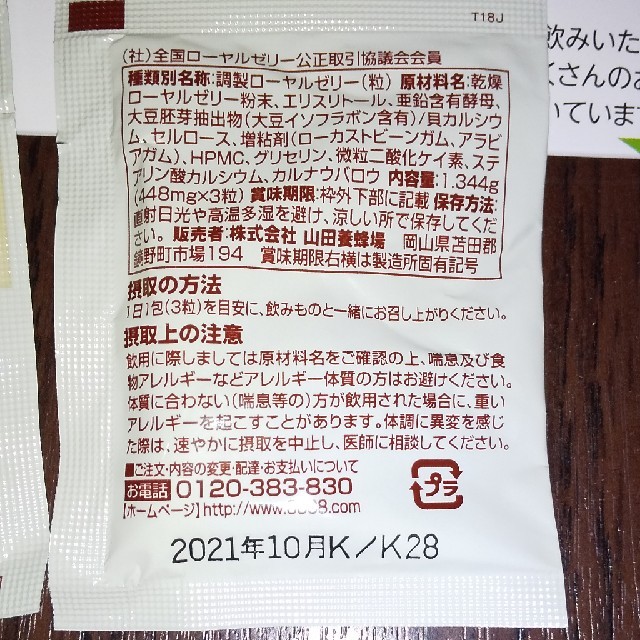 T18J
飲みいた
くさんのお
いていま
(社)全国ローヤルゼリー公正取引協議会会員
種類別名称:調製ローヤルゼリー(粒) 原材料名:乾燥
ローヤルゼリー粉末、エリスリトール、亜鉛含有酵母、
大豆胚芽抽出物(大豆イソフラボン含有)/貝カルシウ
ム、セルロース、増粘剤(ローカストビーンガム、アラビ
アガム)、HPMC、グリセリン、微粒二酸化ケイ素、ステ
アリン酸カルシウム、カルナウバロウ 内容量:1.344g
(448mg×3粒) 賞味期限:枠外下部に記載 保存方法:
直射日光や高温多湿を避け、涼しい所で保存してくだ
さい。 販売者:株式会社 山田養蜂場 岡山県苫田郡
鏡野町市場194 賞味期限右横は製造所固有記号
摂取の方法
1日1包(3粒)を目安に、飲みものと一緒にお召し上がりください。
摂取上の注意
飲用に際しましては原材料名をご確認の上、喘息及び食
物アレルギーなどアレルギー体質の方はお避けください。
体質に合わない(喘息等の)方が飲用された場合に、重い
アレルギーを起こすことがあります。体調に異変を感じ
た際は、速やかに摂取を中止し、医師に相談してください。
■ご注文・内容の変更・配達・お支払いについて
お電話 0120-383-830
【ホームページ】http://www.3838.com
プラ
2021年10月K/K28